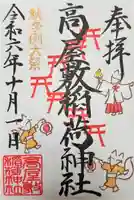 奉拝
高屋敷稲荷神社
秋季例大祭
令和六年十月一日
高屋敷稲荷神社